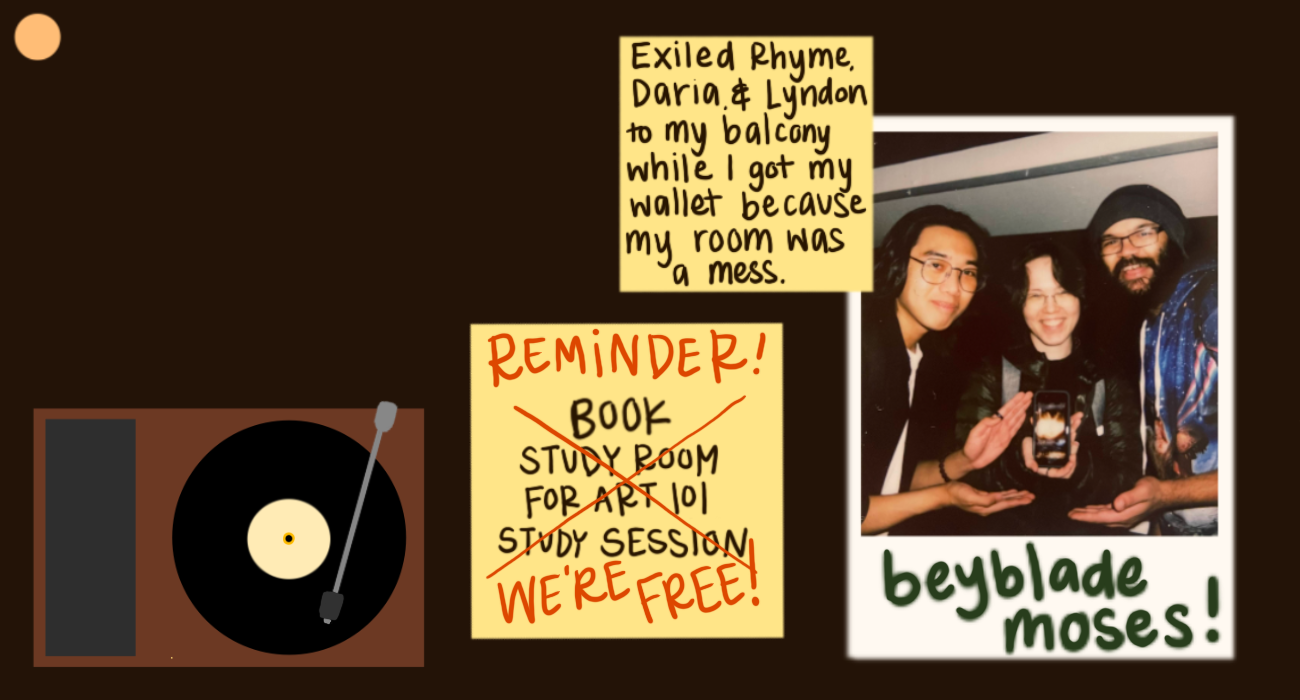 Exiled Rhyme,
Daria, & Lyndon
to my balcony
while I got my
wallet because
my room was
a mess.
REMINDER!
BOOK
STUDY ROOM
FOR ART 101
STUDY SESSION
WE'RE FREE!
beyblade
moses!